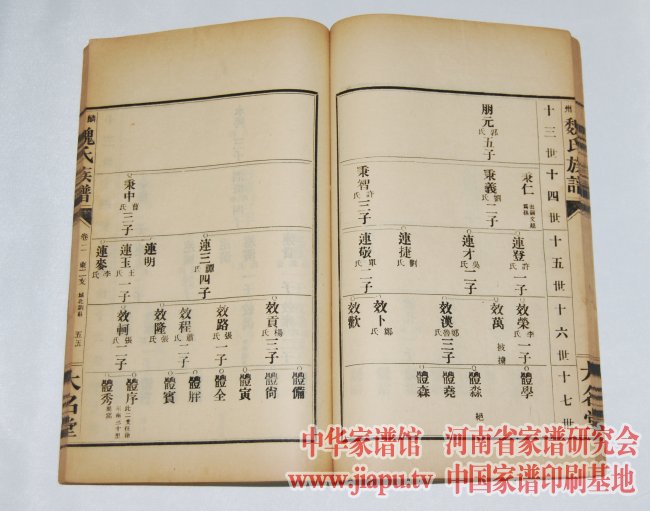 魏氏族譜
十三世 十四世 十五世 十六世 十七世
朋元 郭氏 五子
秉仁
秉義 劉氏 二子
秉智 許氏 三子
連登 許氏 一子
連才 吳氏 二子
連捷 劉氏
連敬 單氏 二子
效榮 李氏 一子
效萬 被擄
效漢 鄭氏 魯氏 三子
效卜 鄭氏
效歡
體學
體淼 絕
體堯
體森
大名堂
秉中 曹氏 三子
連三 譚氏 四子
連明
連玉 王氏 一子
連麥 李氏
效貢 楊氏 三子
效路 張氏 一子
效程 蕭氏 三子
效隆 張氏
效軻 張氏 二子
體備
體尙
體寅
體全
體屏
體賓
體序
體秀
麟 魏氏族譜 卷二 東二支 五五 大名堂
中华家谱馆 河南省家谱研究会
www.jiapu.tv 中国家谱印刷基地